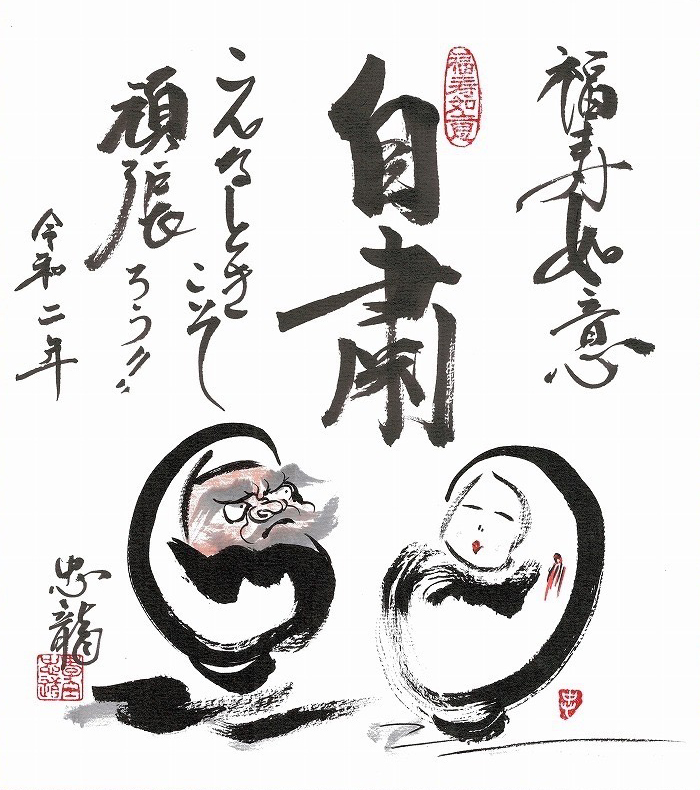 福寿如意
福寿如意
自粛
こんなときこそ
頑張ろう!!
令和二年
忠龍
忠